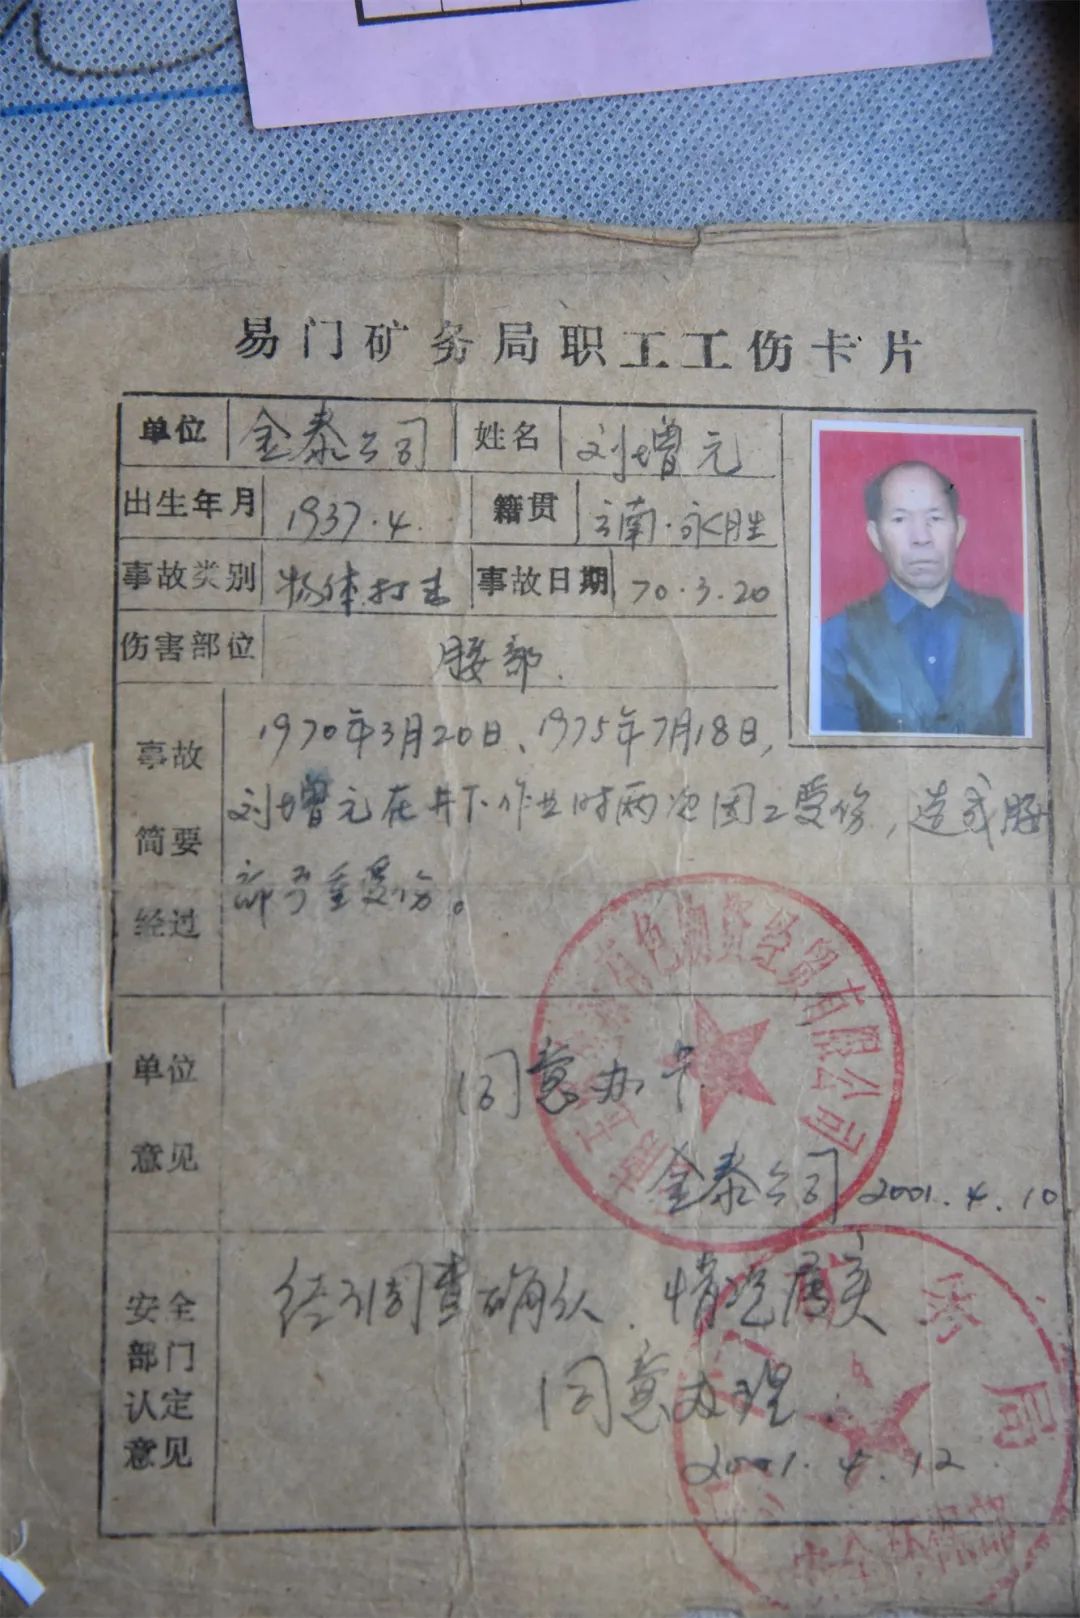 易门矿务局职工工伤卡片
单位 金泰公司 姓名 刘增元
出生年月 1937.4. 籍贯 云南·永胜
事故类别 物体打击 事故日期 70.3.20
伤害部位 腰部.
事故简要经过
1970年3月20日、1975年7月18日,
刘增元在井下作业时两次因工受伤, 造成腰
部严重受伤。
单位意见
同意办卡
金泰公司 2001.4.10
安全部门认定意见
经调查确认、情况属实
同意办理
2001.4.12
有色物资经贸有限公司
务局
安全环保部